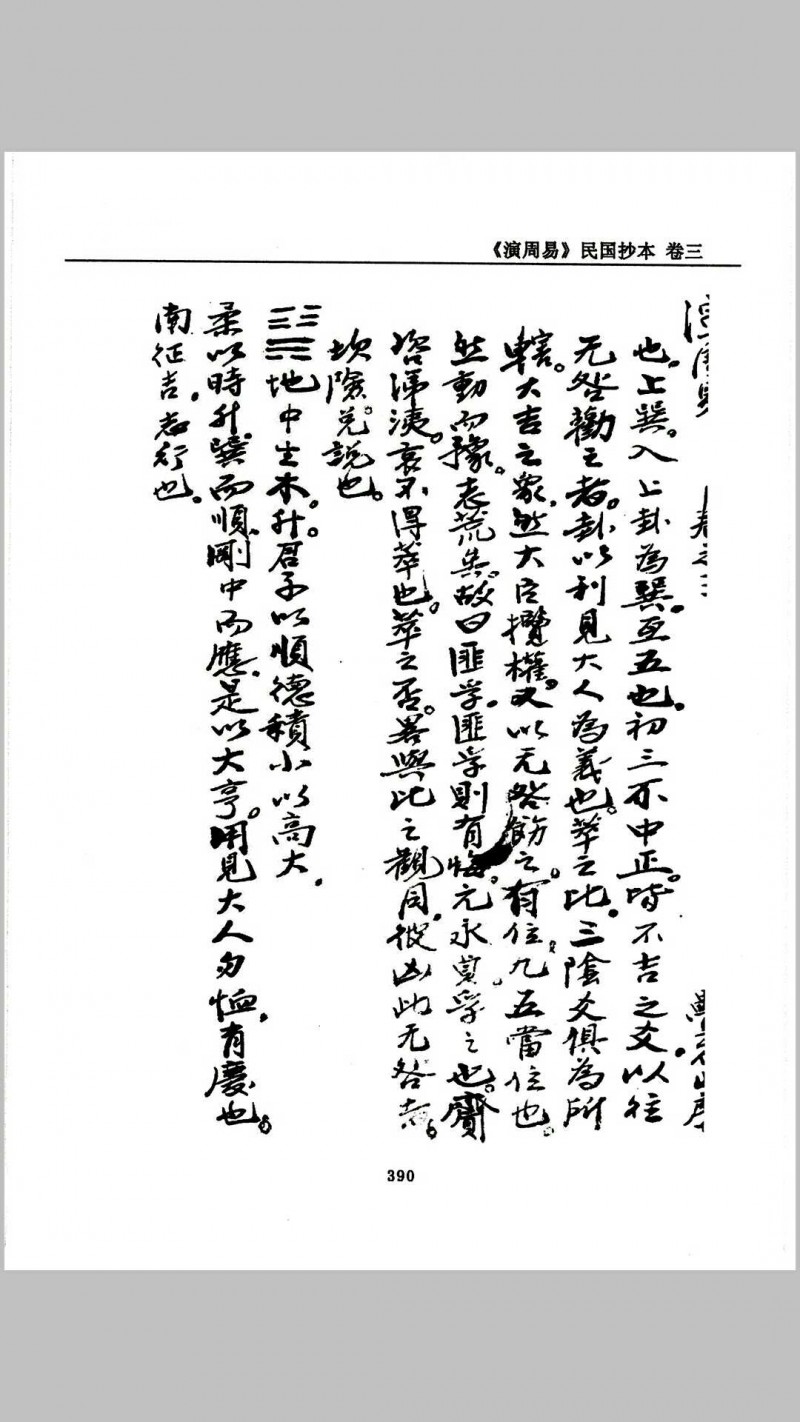 《演周易》民国抄本 卷三
演周易 卷之三
也。上巽。入上卦為巽。互五也。初三不中正。皆不吉之爻。以往
无咎勸之者。卦以利見大人為義也。萃之比。三陰爻俱為所
轄。大吉之象。然大臣攬權。又以无咎飭之。有位。九五當位也。
然動而豫。志荒矣。故曰匪孚。匪孚則有悔。元永貞孚之也。齎
咨涕洟。哀不得萃也。萃之否。畧與比之觀同。彼凶此无咎者。
坎險。兌說也。
地中生木。升。君子以順德積小以高大。
柔以時升。巽而順。剛中而應。是以大亨。用見大人勿恤。有慶也。
南征吉。志行也。
390